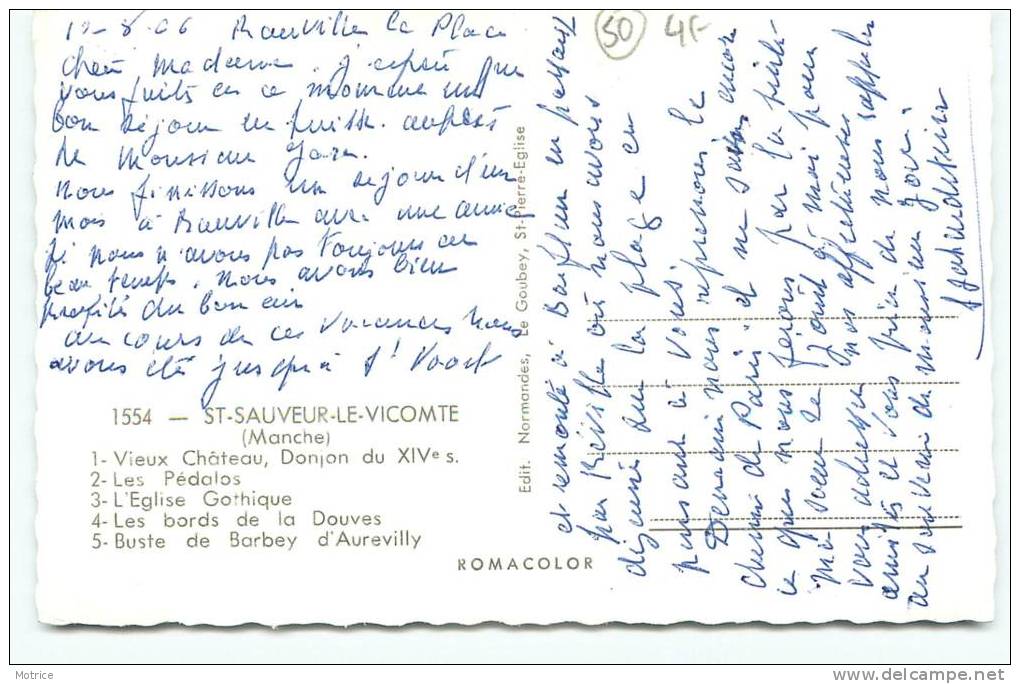 50 4F
12-8-66 Rauville la Place
Chère Madame. J'espère que
vous faites en ce moment un
bon séjour en Suisse. auprès
de Monsieur
nous finissons un séjour d'un
mois à Rauville avec une amie
Si nous n'avons pas toujours eu
beau temps. Nous avons bien
profité du bon air
au cours de ces vacances nous
avons été jusqu'à St Vaast
1554 — ST-SAUVEUR-LE-VICOMTE
(Manche)
1- Vieux Château, Donjon du XIVe s.
2- Les Pédalos
3- L'Eglise Gothique
4- Les bords de la Douves
5- Buste de Barbey d'Aurevilly
ROMACOLOR
Edit. Normandes, Le Goubey, St-Pierre-Eglise
et remonté à Barfleur en passant
par Réville où nous avons
déjeuné sur la plage en
pensant à vous
Demain nous reprenons le
chemin de Paris et ma
ce que nous ferons par la suite
ma sœur se joint à moi pour
vous adresser nos affectueuses
amitiés et vous prier de nous rappeler
au souvenir de monsieur
Motrice
www.delcampe.net